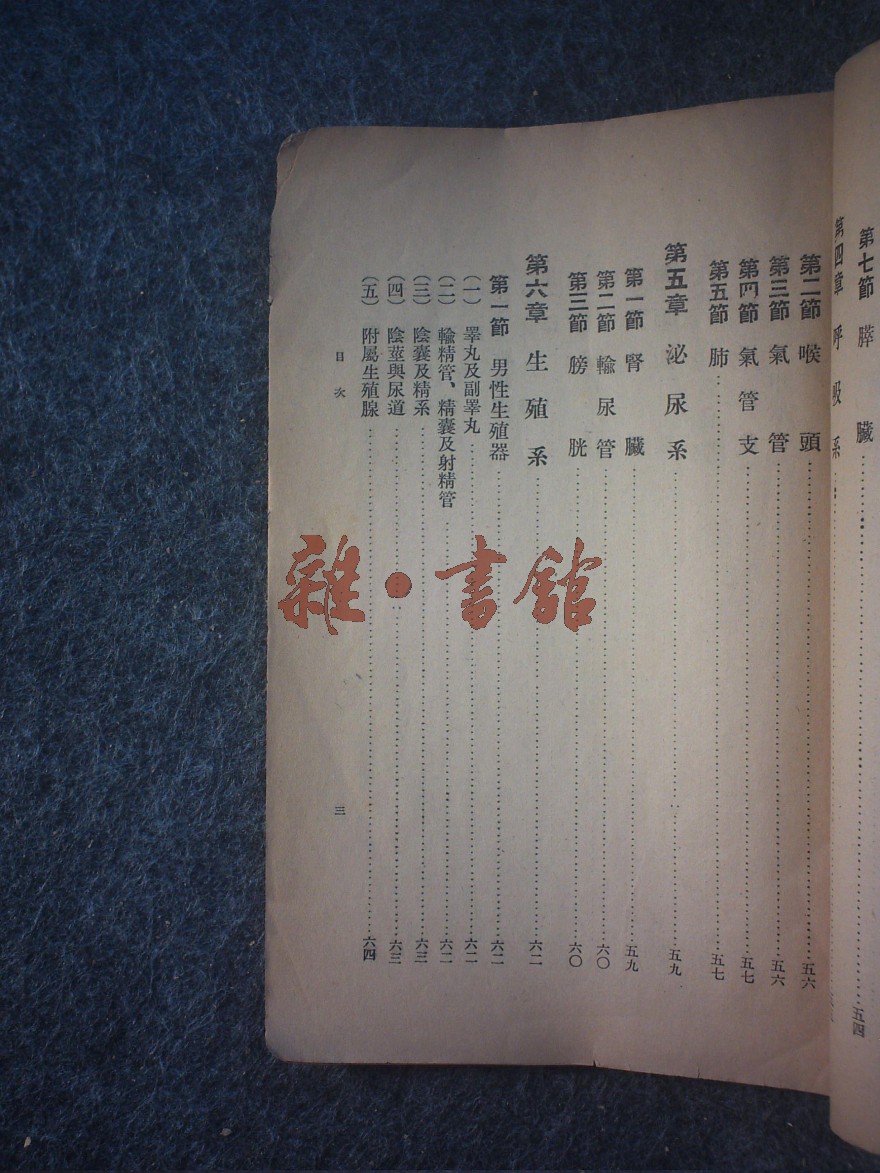 第七節 膵臟 五四
第四章 呼吸系
第二節 喉頭 五六
第三節 氣管 五六
第四節 氣管支 五七
第五節 肺 五七
第五章 泌尿系 五九
第一節 腎臟 五九
第二節 輸尿管 六〇
第三節 膀胱 六〇
第六章 生殖系 六二
第一節 男性生殖器 六二
(一) 睪丸及副睪丸 六二
(二) 輸精管、精囊及射精管 六二
(三) 陰囊及精系 六三
(四) 陰莖與尿道 六三
(五) 附屬生殖腺 六四
目次 三
雜·書館